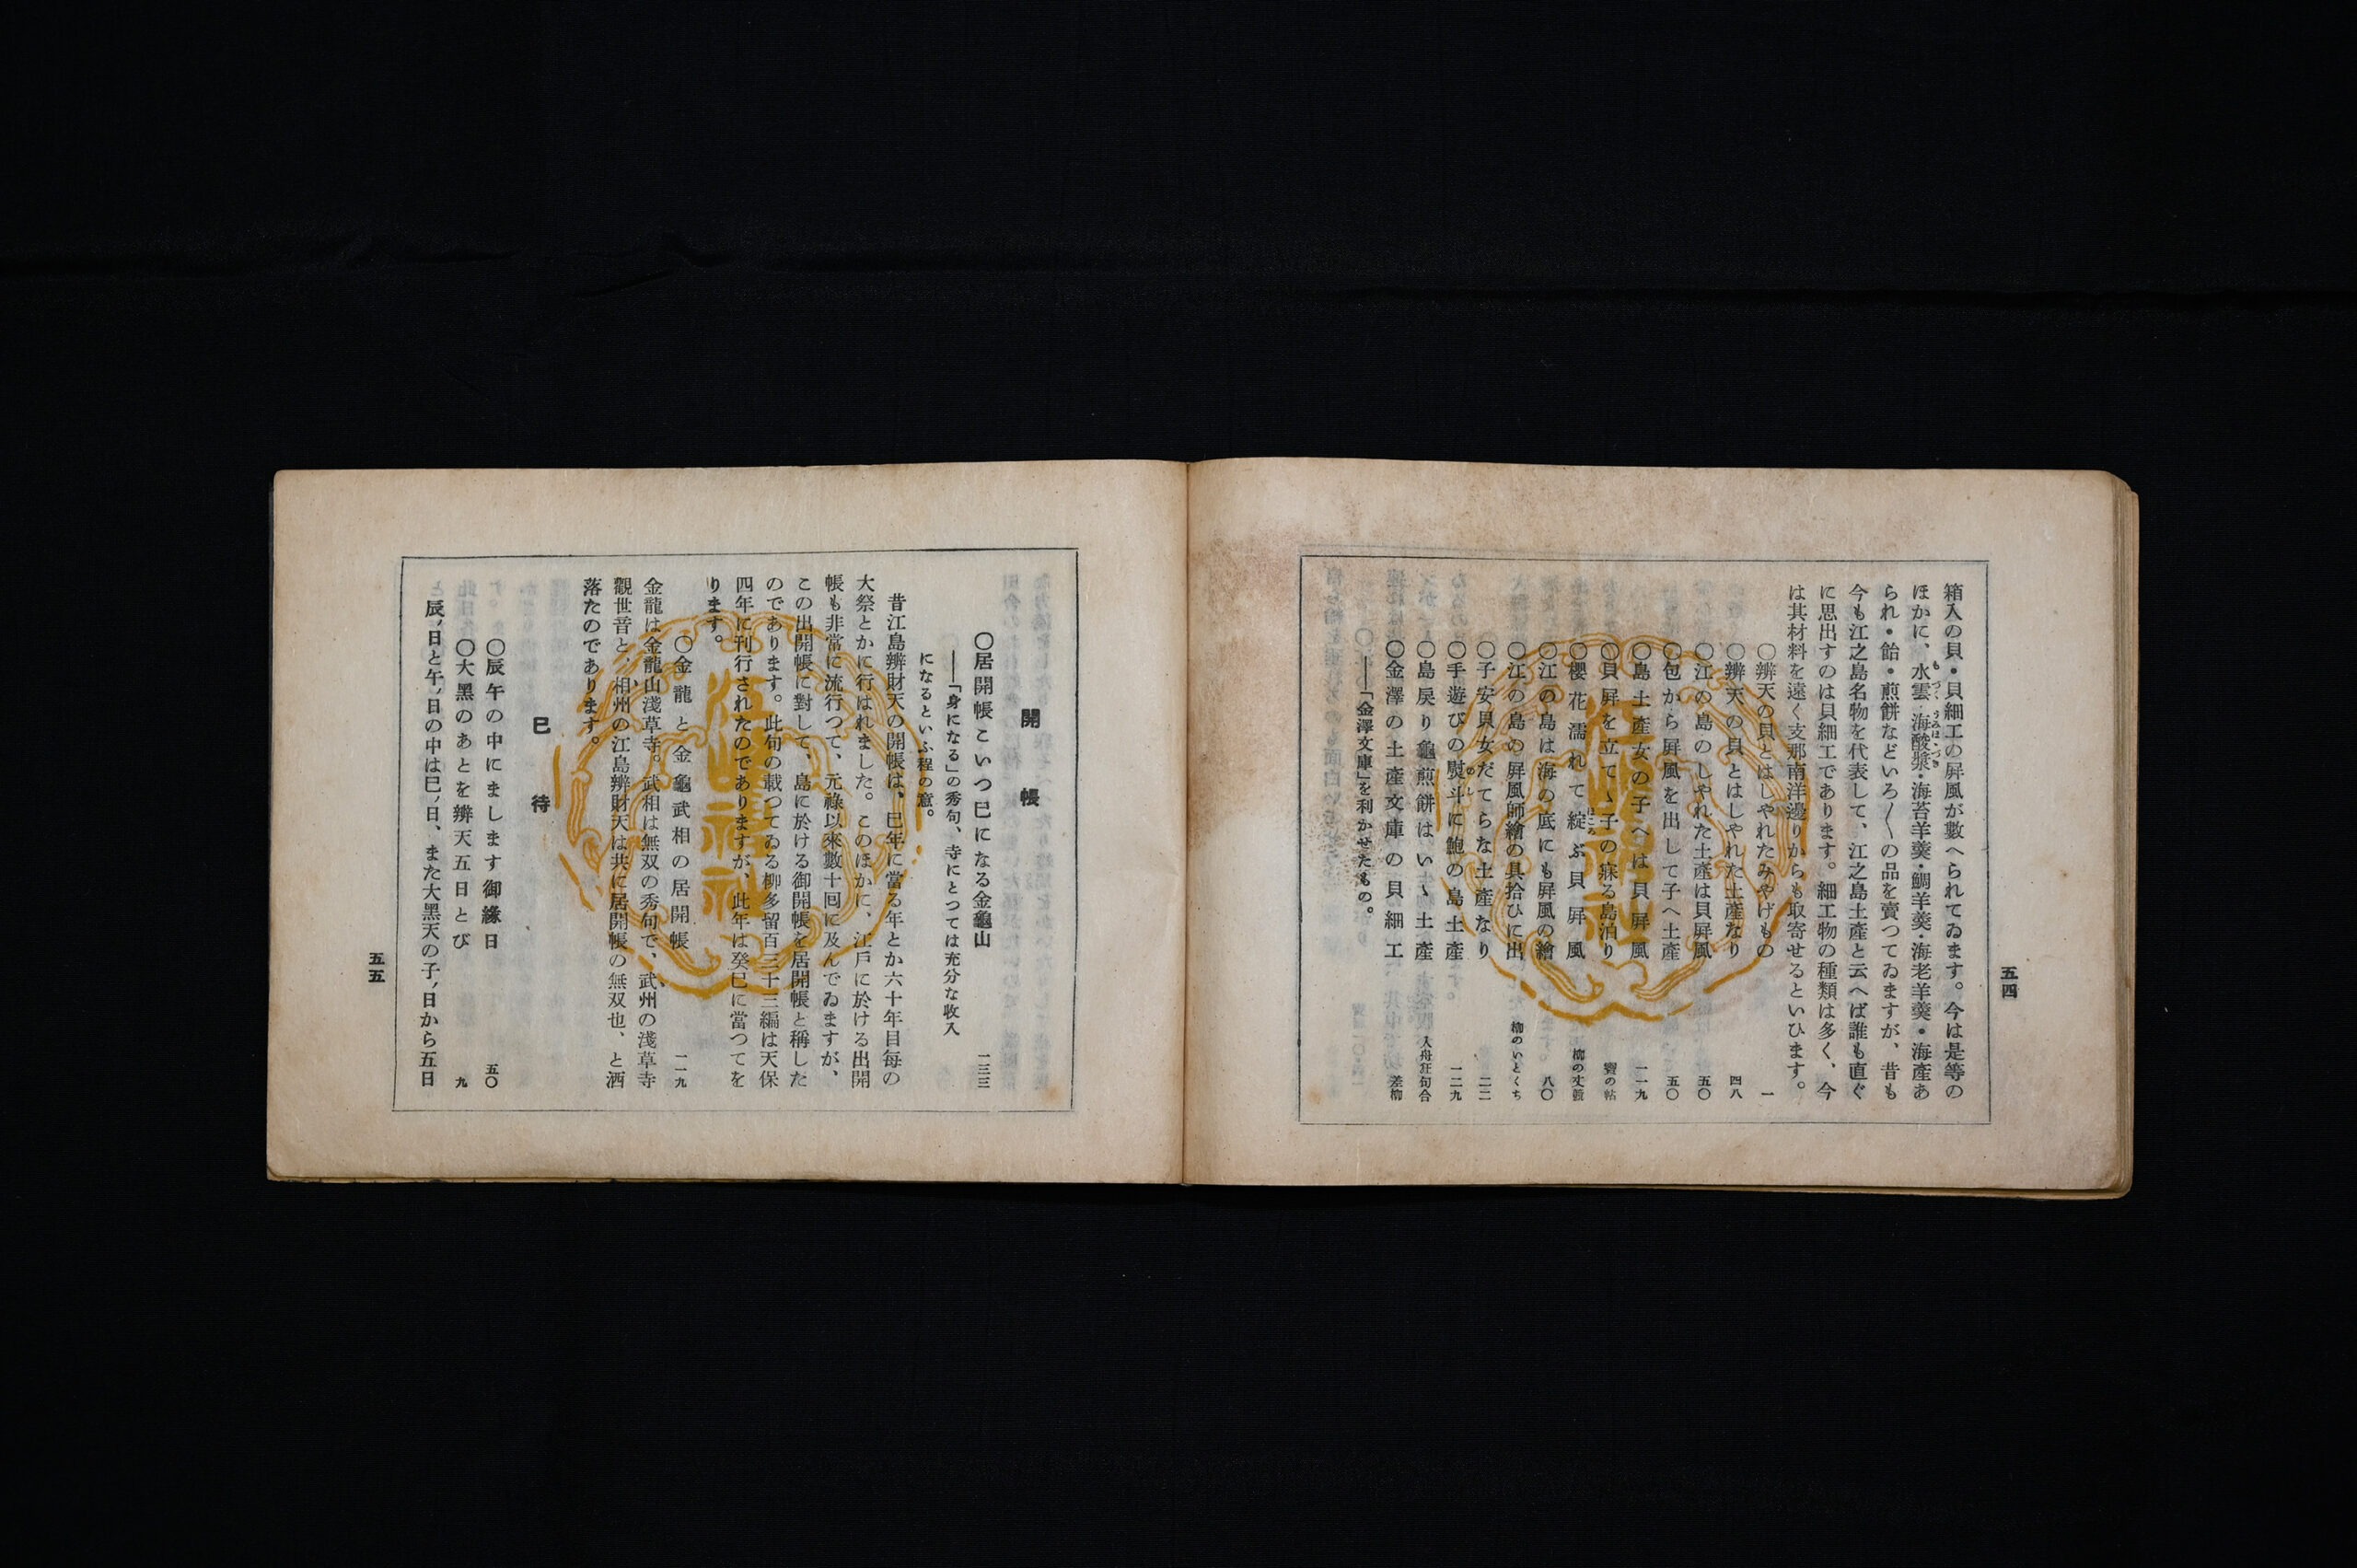 五四
箱入の貝・貝細工の屏風が數へられてゐます。今は是等の
ほかに、水雲・海酸漿・海苔羊羹・鯛羊羹・海老羊羹・海產あ
られ・飴・煎餅などいろ〱の品を賣つてゐますが、昔も
今も江之島名物を代表して、江之島土產と云へば誰も直ぐ
に思出すのは貝細工であります。細工物の種類は多く、今
は其材料を遠く支那南洋邊りからも取寄せるといひます。
〇辨天の貝とはしやれたみやげもの 一
〇辨天の貝とはしやれた土產なり 四八
〇江の島のしやれた土產は貝屏風 五〇
〇包から屏風を出して子へ土產 五〇
〇島土產女の子へは貝屏風 一一九
〇貝屏を立てゝ子の寐る島泊り 寶の帖
〇櫻花濡れて綻ぶ貝屏風 柳の丈競
〇江の島は海の底にも屏風の繪 八〇
〇江の島の屏風師繪の具拾ひに出 柳のいとくち
〇子安貝女だてらな土產なり 二二
〇手遊びの熨斗に鮑の島土產 一二九
〇島戾り龜煎餅はいゝ土產 入舟狂句合
〇金澤の土產文庫の貝細工 差柳
――「金澤文庫」を利かせたもの。
開帳
〇居開帳こいつ巳になる金龜山 一三三
――「身になる」の秀句、寺にとつては充分な收入
になるといふ程の意。
昔江島辨財天の開帳は、巳年に當る年とか六十年目每の
大祭とかに行はれました。このほかに、江戶に於ける出開
帳も非常に流行つて、元祿以來數十囘に及んでゐますが、
この出開帳に對して、島に於ける御開帳を居開帳と稱した
のであります。此句の載つてゐる柳多留百三十三編は天保
四年に刊行されたのでありますが、此年は癸巳に當つてを
ります。
〇金龍と金龜武相の居開帳 一一九
金龍は金龍山淺草寺。武相は無双の秀句で、武州の淺草寺
觀世音と、相州の江島辨財天は共に居開帳の無双也、と洒
落たのであります。
巳待
〇辰午の中にまします御緣日 五〇
〇大黑のあとを辨天五日とび 九
辰ノ日と午ノ日の中は巳ノ日、また大黑天の子ノ日から五日
五五